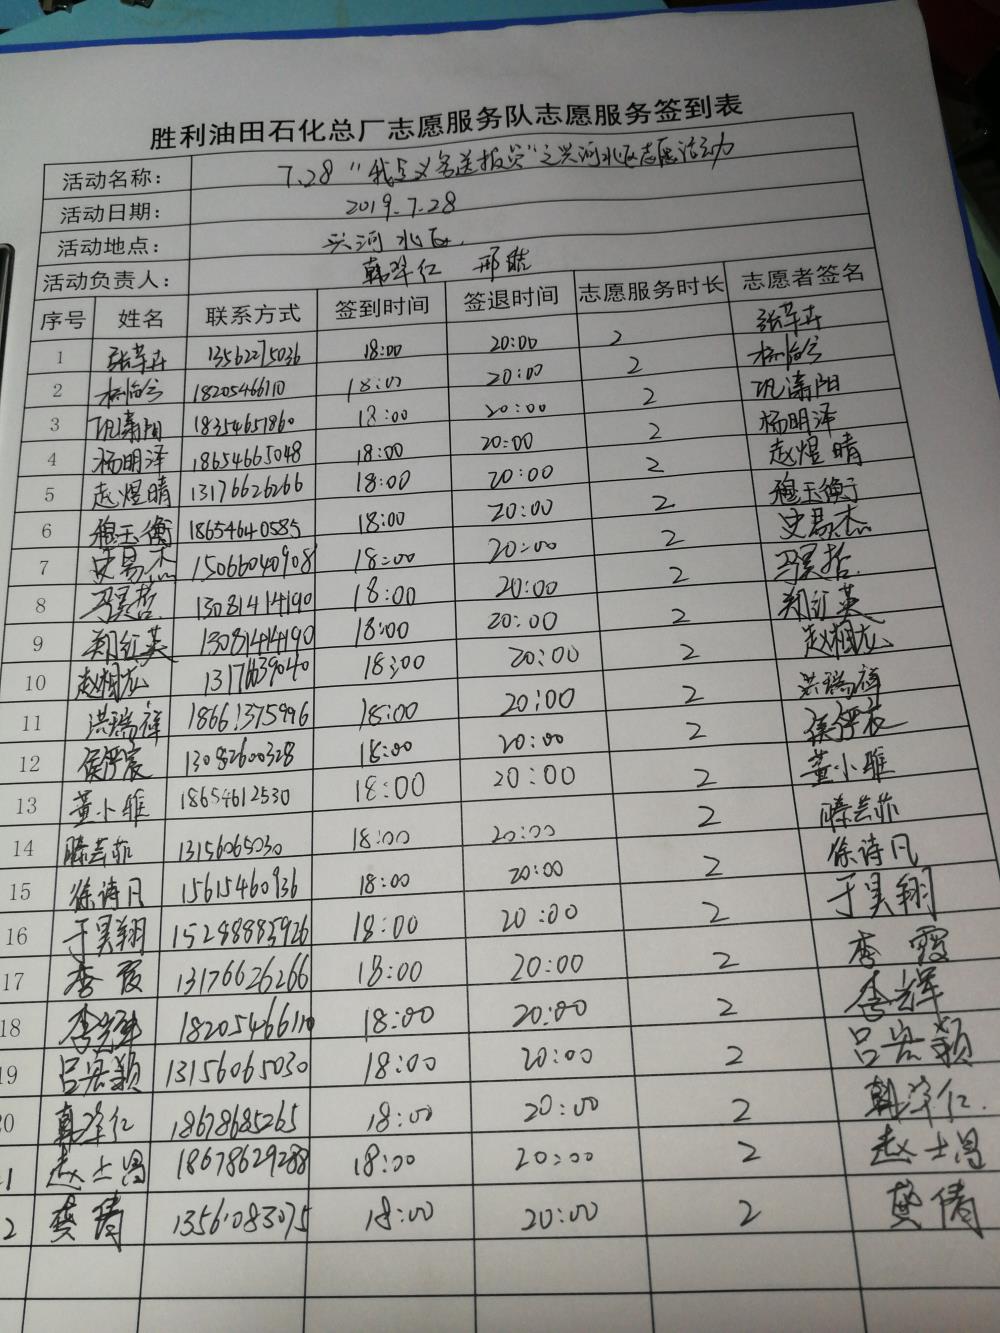 胜利油田石化总厂志愿服务队志愿服务签到表
活动名称： 7.28 "我与义务送报员"之兴河北区志愿活动
活动日期： 2019.7.28
活动地点： 兴河北区.
活动负责人： 韩泽仁 邢皓
序号 姓名 联系方式 签到时间 签退时间 志愿服务时长 志愿者签名
1 13562275036 18:00 20:00 2
2 18205466110 18:00 20:00 2
3 巩潇阳 18354651860 18:00 20:00 2 巩潇阳
4 杨明泽 18654665048 18:00 20:00 2 杨明泽
5 赵煜晴 13176626266 18:00 20:00 2 赵煜晴
6 穆玉衡 18654640585 18:00 20:00 2 穆玉衡
7 史易杰 15066040908 18:00 20:00 2 史易杰
8 冯昊哲 13081414190 18:00 20:00 2 冯昊哲.
9 郑红英 13081414190 18:00 20:00 2 郑红英
10 赵相龙 13176639040 18:00 20:00 2 赵相龙
11 洪瑞祥 18661375996 18:00 20:00 2 洪瑞祥
12 13082600328 18:00 20:00 2
13 董小雅 18654612530 18:00 20:00 2 董小雅
14 滕芸菲 13156065030 18:00 20:00 2 滕芸菲
15 徐诗凡 15615460936 18:00 20:00 2 徐诗凡
16 于昊翔 15288883926 18:00 20:00 2 于昊翔
17 李霞 13176626266 18:00 20:00 2 李霞
18 李光辉 18205466110 18:00 20:00 2 李光辉
19 吕宏颖 13156065030 18:00 20:00 2 吕宏颖
20 韩泽仁 18678685265 18:00 20:00 2 韩泽仁.
1 赵士昌 18678629288 18:00 20:00 2 赵士昌
2 龚倩 13561083075 18:00 20:00 2 龚倩